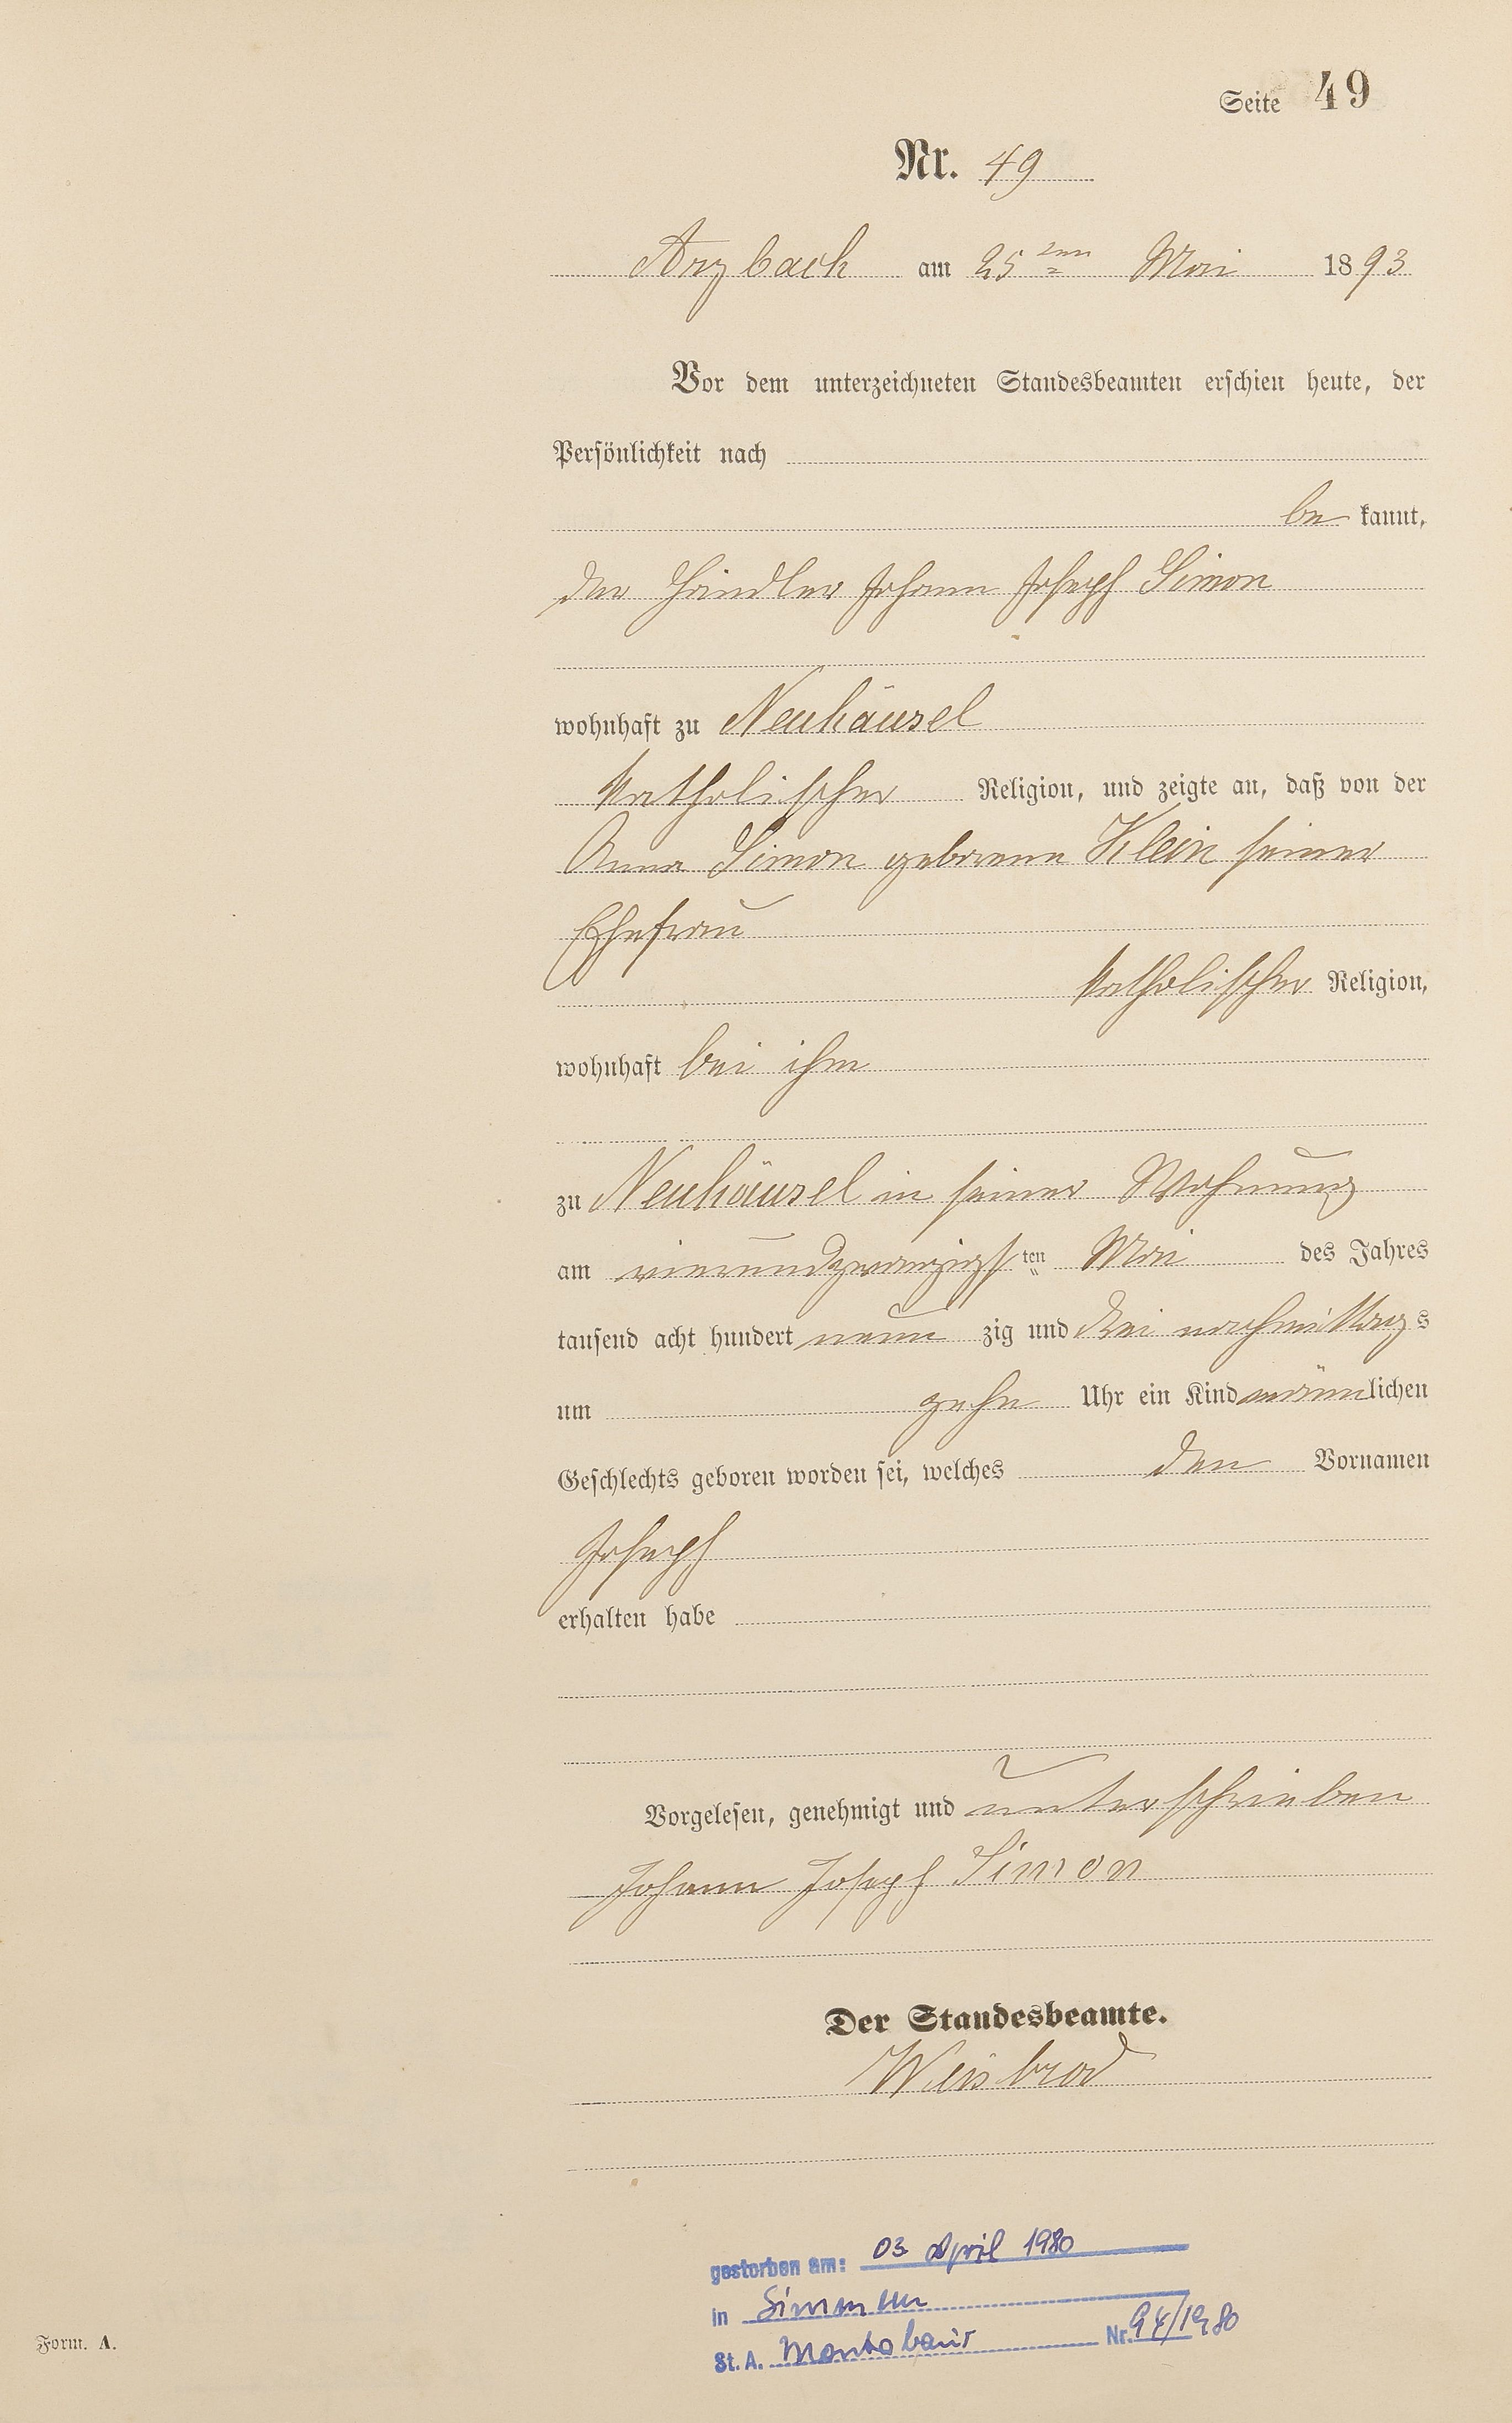 Seite 49
Nr. 49
Arzbach am 25ten Mai 1893
Vor dem unterzeichneten Standesbeamten erschien heute, der
Persönlichkeit nach
be kannt,
der Händler Johann Joseph Simon
wohnhaft zu Neuhäusel
katholischer Religion, und zeigte an, daß von der
Anna Simon geborene Klein seiner
Ehefrau
katholischer Religion,
wohnhaft bei ihm
zu Neuhäusel in seiner Wohnung
am vierundzwanzigsten Mai des Jahres
tausend acht hundert neun zig und drei nachmittags
um zehn Uhr ein Kind männlichen
Geschlechts geboren worden sei, welches den Vornamen
Joseph
erhalten habe
Vorgelesen, genehmigt und unterschrieben
Johann Joseph Simon
Der Standesbeamte.
Weisbrod
gestorben am: 03. April 1980
in Simmern
St. A. Montabaur Nr. 94/1980
Form. A.